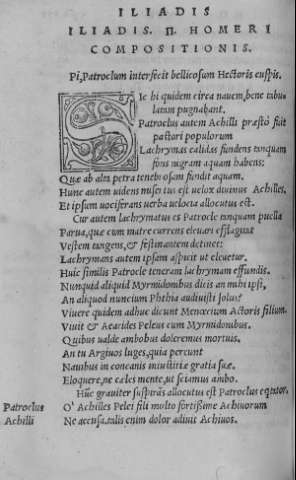 ILIADIS
ILIADIS. Π. HOMERI
COMPOSITIONIS.
Pi, Patroclum interfecit bellicosum Hectoris cuspis.
SIc hi quidem circa nauem, bene tabu
latam pugnabant.
Patroclus autem Achilli præsto fuit
pastori populorum
Lachrymas calidas fundens tanquam
fons nigram aquam habens:
Quæ ab alta petra tenebrosam fundit aquam.
Hunc autem uidens misertus est uelox diuinus Achilles,
Et ipsum uociferans verba uelocia allocutus est.
Cur autem lachrymatus es Patrocle tanquam puella
Parua, quæ cum matre currens eleuari efflagitat
Vestem tangens, & festinantem detinet:
Lachrymans autem ipsam aspicit ut eleuetur.
Huic similis Patrocle teneram lachrymam effundis.
Nunquid aliquid Myrmidonibus dicis an mihi ipsi,
An aliquod nuncium Phthia audiuisti solus?
Viuere quidem adhuc dicunt Menœtium Actoris filium.
Viuit & Aeacides Peleus cum Myrmidonibus.
Quibus ualde ambobus doleremus mortuis.
An tu Argiuos luges, quia pereunt
Nauibus in concauis iniustitiæ gratia suæ.
Eloquere, ne cæles mente, ut sciamus ambo.
Hūc grauiter suspirās allocutus est Patroclus eques.
Patroclus O' Achilles Pelei fili multo fortissime Achiuorum
Achilli Ne accusa. talis enim dolor adiuit Achiuos.